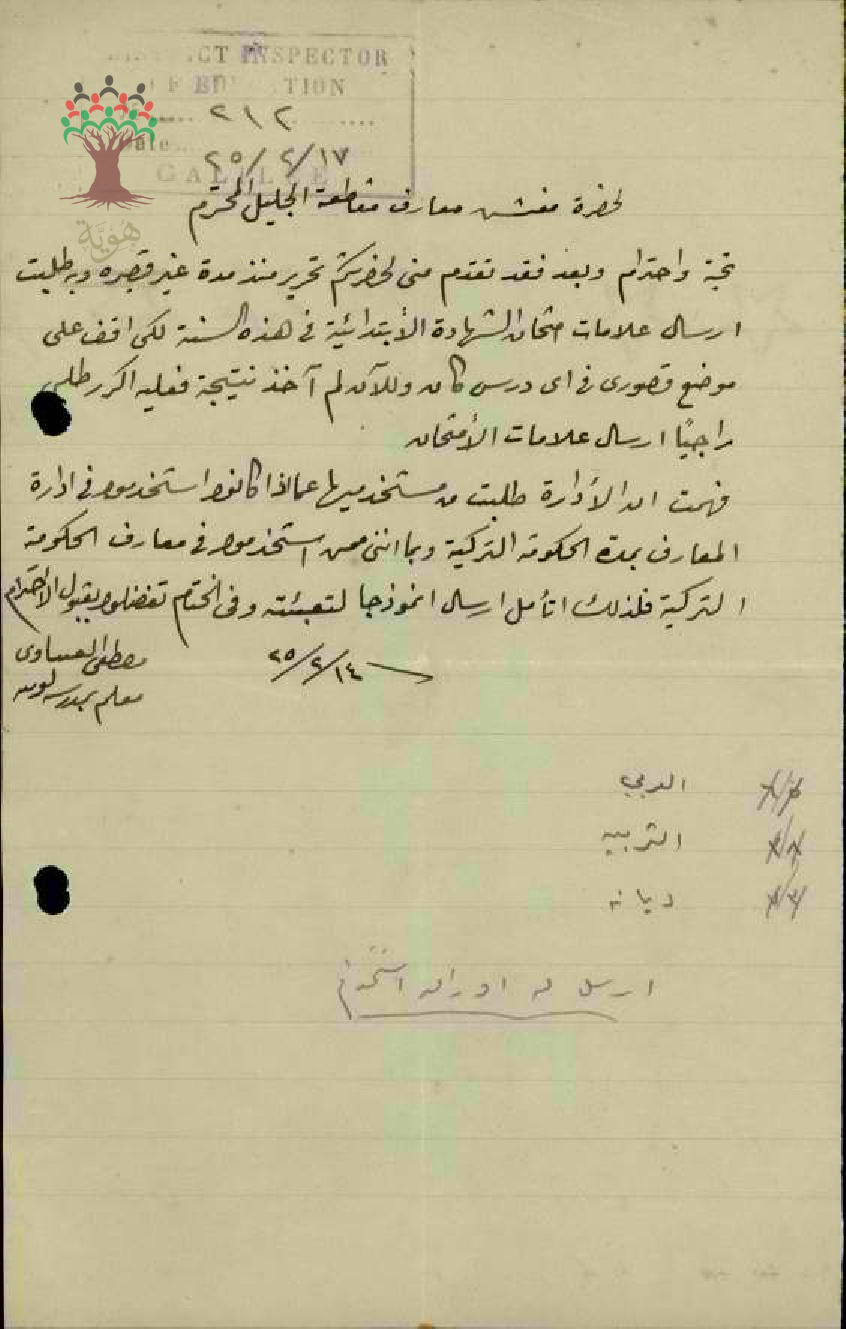 DISTRICT INSPECTOR
OF EDUCATION
٢١٢
Date ٢٥/٢/١٧
GALILEE
هُويَّة
لحضرة مفتش معارف مقاطعة الجليل المحترم
تحية واحترام وبعد فقد تقدم منى لحضرتكم تحرير منذ مدة غير قصيره وبه طلبت
ارسال علامات امتحان الشهادة الأبتدائية في هذه السنة لكى اقف على
موضع قصورى فى اى درس كان وللآن لم آخذ نتيجة فعليه اكرر طلبى
راجيًا ارسال علامات الأمتحان
فهمت ان الأدارة طلبت من مستخدميها عما اذا كانوا استخدموا فى ادارة
المعارف بمدة الحكومة التركية وبما اننى ممن استخدموا فى معارف الحكومة
التركية فلذلك اتأمل ارسال انموذجا لتعبئته وفى الختام تفضلوا بقبول الاحترام
٢٥/٢/١٤
مصطفى العيساوى
معلم بمدرسة لوبيه
العربي
التربيه
ديانه
ارسل له اوراق استخدام